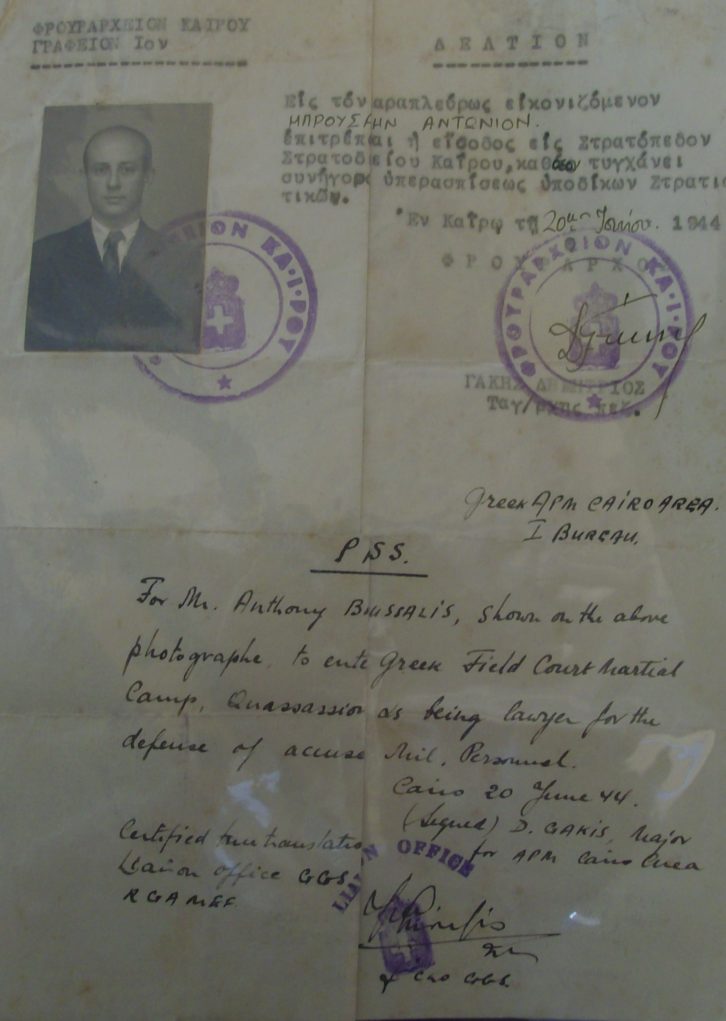 ΦΡΟΥΡΑΡΧΕΙΟΝ ΚΑΙΡΟΥ
ΓΡΑΦΕΙΟΝ Ιον
ΔΕΛΤΙΟΝ
Είς τόν αραπλεύρως είκονιζόμενον
ΜΠΡΟΥΣΑΛΗΝ ΑΝΤΩΝΙΟΝ.
έπιτρέπεται ή είσοδος είς Στρατόπεδον
Στρατοδικείου Καΐρου, καθόσον τυγχάνει
συνήγορος ύπερασπίσεως ύποδίκων Στρατιω
τικών.
Έν Καΐρω τη 20ην Ιουνίου. 1944
ΦΡΟΥΡΑΡΧΟΣ
ΦΡΟΥΡΑΡΧΕΙΟΝ ΚΑ·Ι·ΡΟΥ
ΦΡΟΥΡΑΡΧΕΙΟΝ ΚΑ·Ι·ΡΟΥ
ΓΑΚΗΣ ΔΗΜΗΤΡΙΟΣ
Ταγ/ρχης πεζ.
Greek APM CAIRO AREA.
I BUREAU.
PASS.
For Mr. Anthony BRUSSALIS, shown on the above
photographe, to ente Greek Field Court Martial
Camp, Quassassion as being lawyer for the
defense of accuse Mil. Personnel.
Cairo 20 June 44.
(Signed) D. GAKIS, Major
for APM Cairo Area
Certified true translation
Liaison office GGS
RGAMEF.
LIAISON OFFICE
GGS.